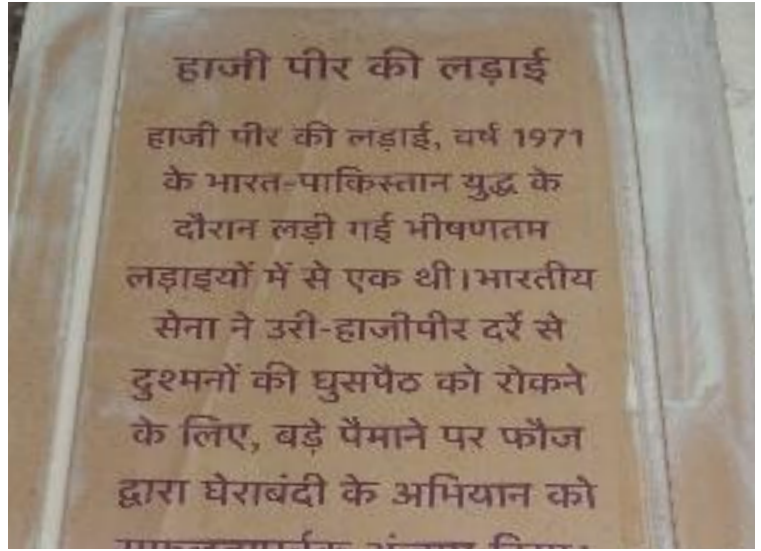 हाजी पीर की लड़ाई
हाजी पीर की लड़ाई, वर्ष 1971
के भारत-पाकिस्तान युद्ध के
दौरान लड़ी गई भीषणतम
लड़ाइयों में से एक थी।भारतीय
सेना ने उरी-हाजीपीर दर्रे से
दुश्मनों की घुसपैठ को रोकने
के लिए, बड़े पैमाने पर फौज
द्वारा घेराबंदी के अभियान को